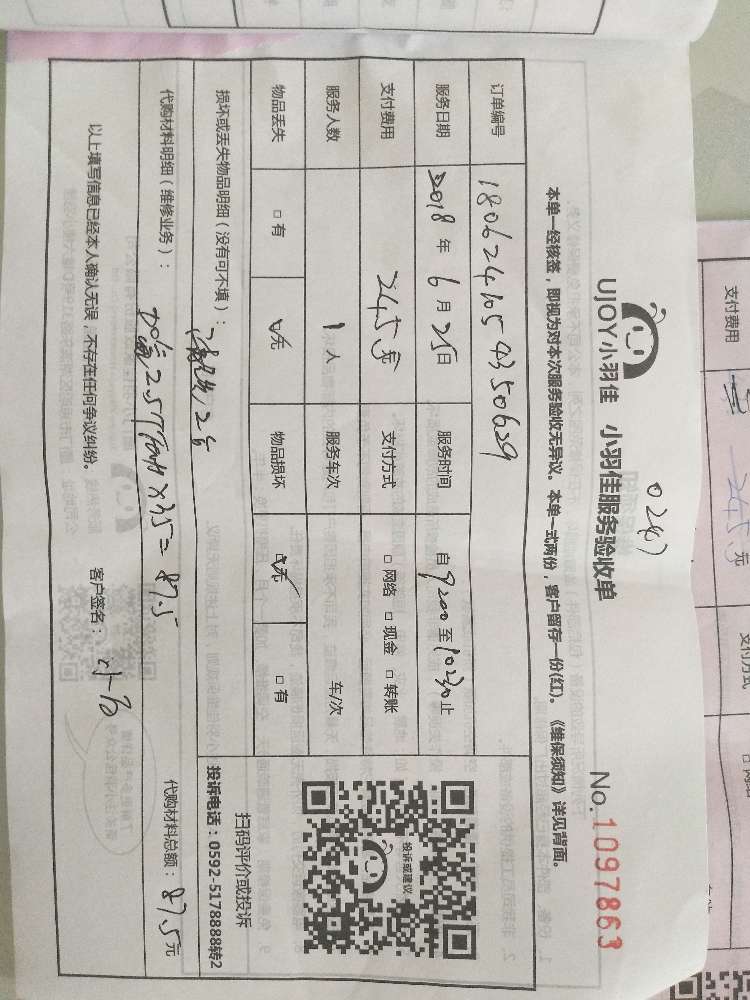 0247
UJOY小羽佳 小羽佳服务验收单
No. 1097863
本单一经核签，即视为对本次服务验收无异议。本单一式两份，客户留存一份(红)。《维保须知》详见背面。
订单编号 180624105 4350629
服务日期 2018 年 6 月 25 日 服务时间 自 9:00 至 10:30 止
支付费用 245 元 支付方式 □ 网络 □ 现金 □ 转账
服务人数 1 人 服务车次 车/次
物品丢失 □ 有 □ 无 物品损坏 □ 无 □ 有
投诉或建议
扫码评价或投诉
投诉电话：0592-5178888转2
损坏或丢失物品明细（没有可不填）：
代购材料明细（维修业务）： 2.5 X35=87.5
代购材料总额： 87.5 元
以上填写信息已经本人确认无误，不存在任何争议纠纷。 客户签名：
支付费用 245 元 支付方式